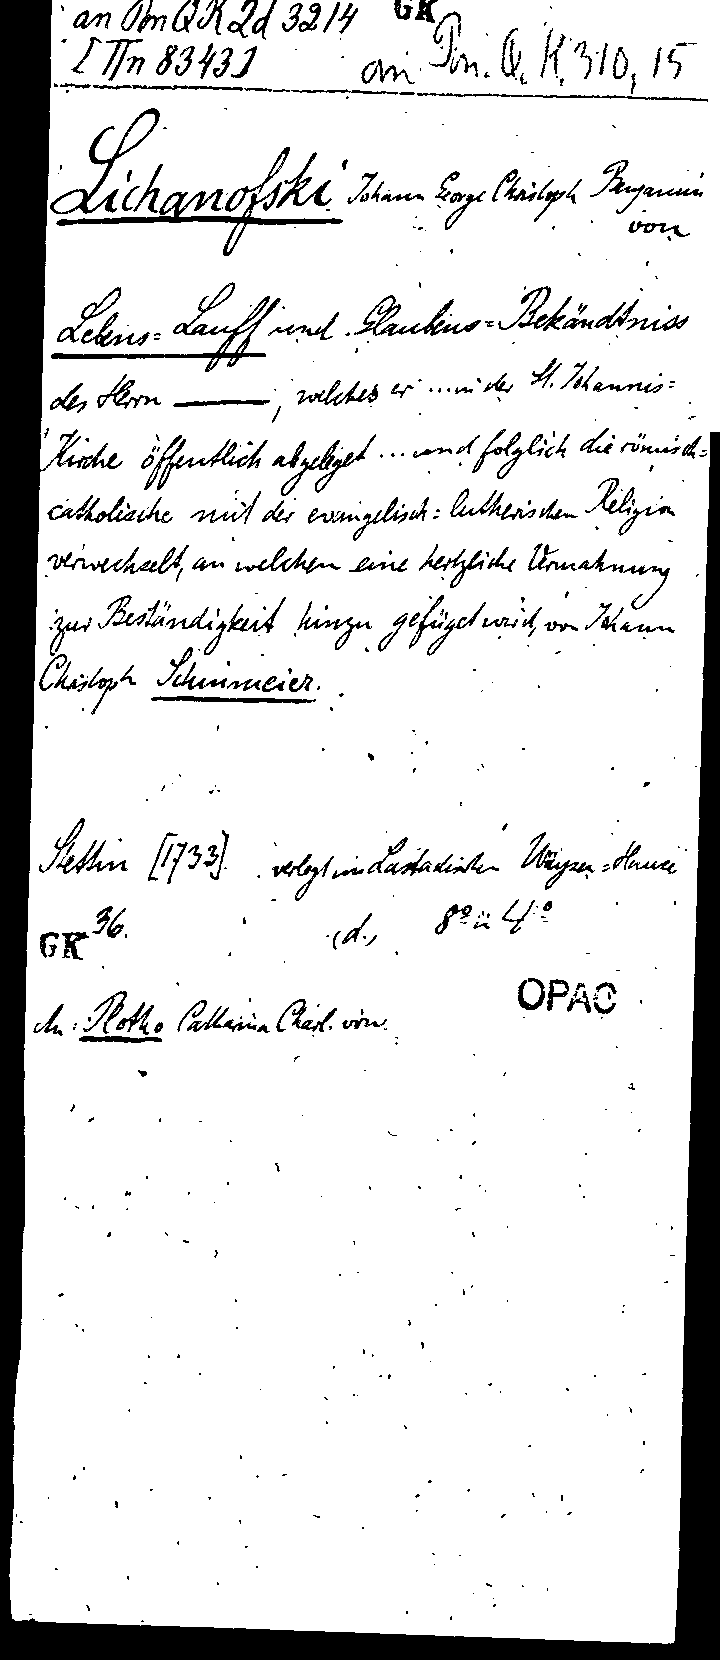 an Pon QK 2d 3214 GK
[IIn 8343] an Pon. Q. K. 310, 15
Lichanofski Johann George Christoph Benjamin
von
Lebens= Lauff und Glaubens=Bekändtniss
des Herrn ———, welches er ... in der St. Johannis=
Kirche öffentlich abgeleget ... und folglich die römisch=
catholische mit der evangelisch=lutherischen Religion
verwechselt, an welchen eine hertzliche Vermahnung
zur Beständigkeit hinzu gefüget wird, von Johann
Christoph Schinmeier.
Stettin [1733]. verlegt im Lastadischen Wäysen=Hause
GK 36. (d.) 8° u 4°
OPAC
An: Plotho Catharina Charl. von